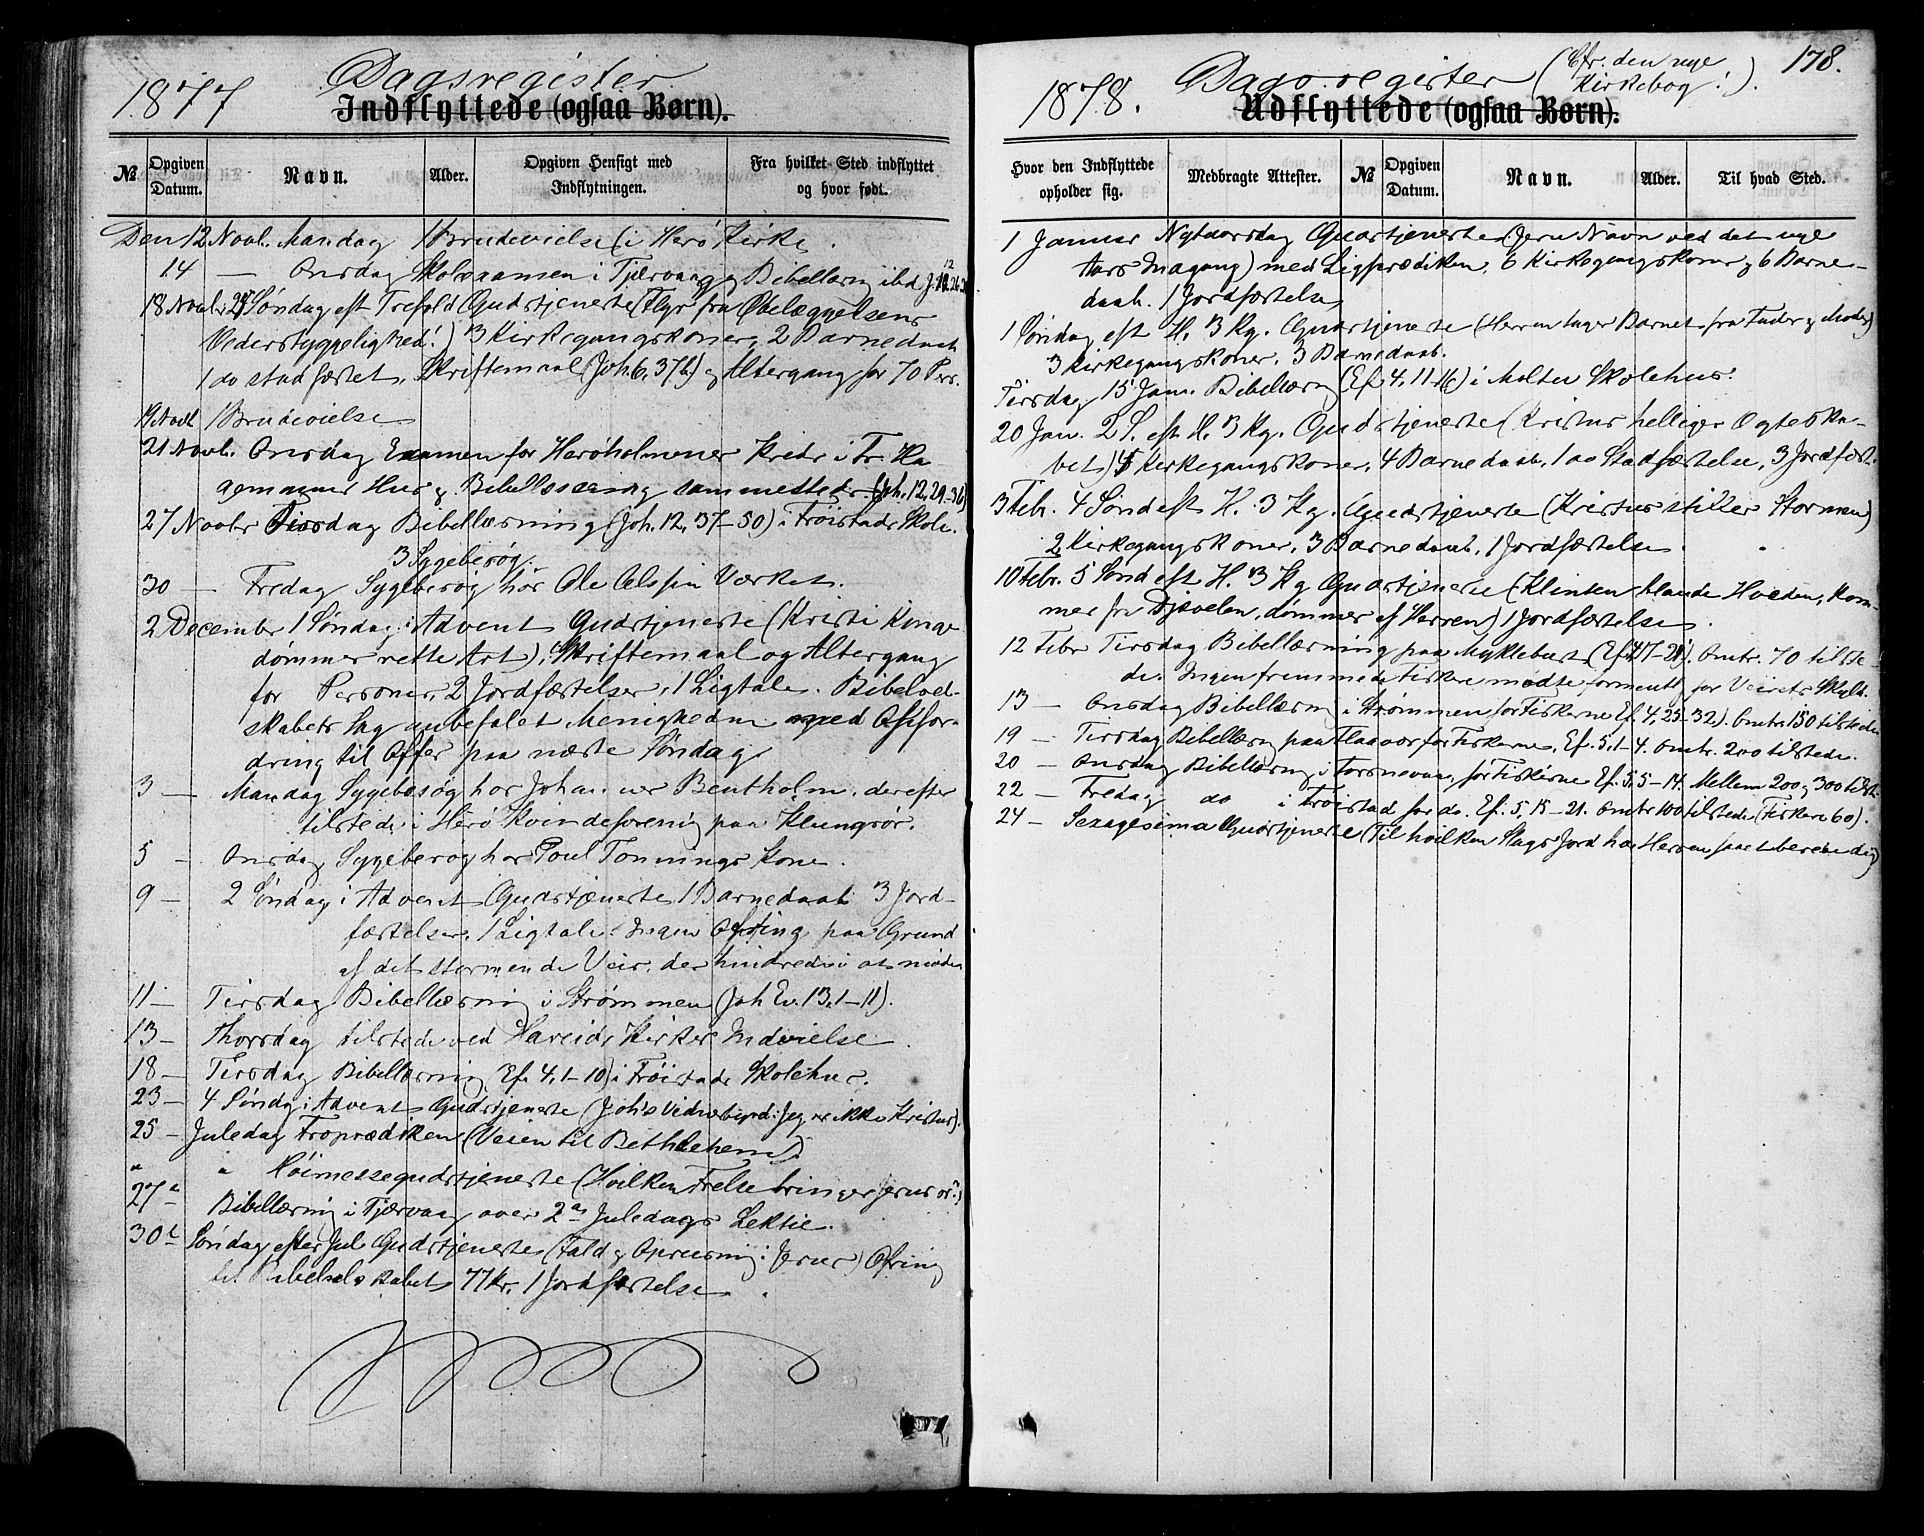 1877 Dagsregister
Indflyttede (ogsaa Børn).
№ Opgiven Datum. Navn. Alder. Opgiven Hensigt med Indflytningen. Fra hvilket Sted indflyttet og hvor født.
Den 12 Novb. Mandag 1 Brudevielse i Herø Kirke.
14 — Onsdag Skolexamen i Tjærvaag og Bibellæsn. ibd
18 Novbr. Søndag eft Trefold. Gudstjeneste (Flyr fra Ødelæggelsens
Vederstyggelighed!) 3 Kirkegangskoner, 2 Barnedaab
1 do stadfæstet, Skriftemaal (Joh. 6, 37b) og Altergang for 70 Pers.
19 Novb 1 Brudevielse
21 Novb. Onsdag Examen for Herøholmenes Kreds i Fr. Ha-
gemanns Hus og Bibellæsning sammesteds (Joh. 12, 29-36)
27 Novbr Tirsdag Bibellæsning (Joh. 12, 37-50) i Frøistads Skole.
3 Sygebesøg.
30 — Fredag Sygebesøg hos Ole Olsen Værket.
2 December 1 Søndag i Advent Gudstjeneste (Kristi Konge-
dømmes rette Art), Skriftemaal og Altergang
for Personer, 2 Jordfæstelser, 1 Ligtale. Bibelsel-
skabets Sag anbefalet Menigheden med Opfor-
dring til Offer paa næste Søndag
3 — Mandag Sygebesøg hos Johannes Bentholm, derefter
tilstede i Herø Kvindeforening paa Klungsør.
5 — Onsdag Sygebesøg hos Poul Tonnings Kone.
9 — 2 Søndag i Advent Gudstjeneste 1 Barnedaab 3 Jord-
fæstelser, 1 Ligtale. Ingen Ofring paa Grund
af det stormende Veir, der hindrede i at møde
11 — Tirsdag Bibellæsning i Strømmen (Joh Ev. 13, 1-11).
13 — Thorsdag tilstede ved Hareids Kirkes Indvielse.
18 — Tirsdag Bibellæsning (Ef. 4, 1-10) i Frøistads Skolehus.
23 — 4 Søndag i Advent Gudstjeneste (Joh's Vidnesbyrd: Jeg er ikke Kristus).
25 — Juledag Froprædiken (Veien til Bethlehem)
" " Høimessegudstjeneste (Hvilken Frelse bringer Jesus os?)
27 " Bibellæsning i Tjærvaag over 2den Juledags Lektie.
30 " Søndag efter Jul Gudstjeneste (Fald og Opreisning i Jesus) Ofring
til Bibelselskabet 77 kr. 1 Jordfæstelse.
1878. Dagsregister (Cfr. den nye Kirkebog!). 178.
Udflyttede (ogsaa Børn).
Hvor den Indflyttede opholder sig. Medbragte Attester. № Opgiven Datum. Navn. Alder. Til hvad Sted.
1 Januar Nytaarsdag Gudstjeneste (Jesu Navn ved det nye
Aars Indgang) med Ligprædiken, 6 Kirkegangskoner og 6 Barne-
daab. 1 Jordfæstelse
1 Søndag eft. H. 3 Kg. Gudstjeneste (Herren tager Barnet fra Fader og Moder)
3 Kirkegangskoner, 3 Barnedaab.
Tirsdag 15 Jan. Bibellæsning (Ef. 4, 11-16) i Moltu Skolehus.
20 Jan. 2 S. eft. H. 3 Kg. Gudstjeneste (Kristus helliger Ægteska-
bet) 5 Kirkegangskoner, 4 Barnedaab, 1 do Stadfæstelse, 3 Jordfæst.
3 Febr. 4 Sønd eft H. 3 Kg. Gudstjeneste (Kristus stiller Stormen)
2 Kirkegangskoner, 3 Barnedaab, 1 Jordfæstelse.
10 Febr. 5 Sønd eft H. 3 Kg Gudstjeneste (Klinten blandt Hveden, kom-
mer fra Djævelen, dømmes af Herren) 1 Jordfæstelse.
12 Febr Tirsdag Bibellæsning paa Myklebust (Ef. 4, 17-21). Omtr. 70 tilste-
de. Ingen fremmede Fiskere mødte, formentl. for Veirets Skyld.
13 — Onsdag Bibellæsn. i Strømmen for Fiskerne Ef. 4, 25-32). Omtr. 150 tilstede
19 — Tirsdag Bibellæsn paa Flaavær for Fiskerne, Ef. 5, 1-4. Omtr. 200 tilstede.
20 — Onsdag Bibellæsn. i Torsnevaag for Fiskerne Ef. 5, 5-14. Mellem 200 og 300 tilst.
22 — Fredag do i Frøistad for do. Ef. 5, 15-21. Omtr 100 tilstede (Fiskere 60).
24 — Sexagesima Gudstjeneste (Til hvilken Slags Jord har Herren faaet berede dig)